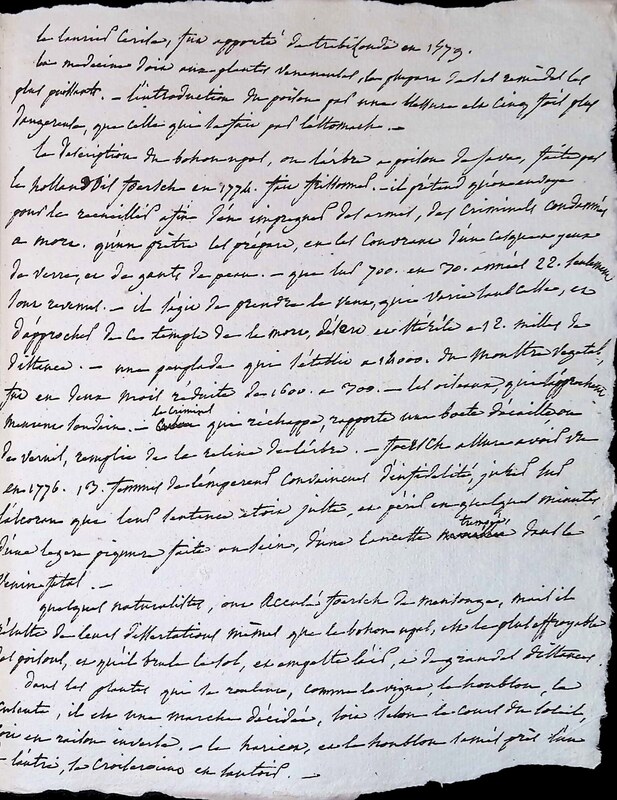 le laurier Cerise, fut apporté de trebizonde en 1579.
la medecine doit aux plantes veneneuses, la plupart de ses remedes les
plus puissants. — l'introduction du poison par une blessure est cinq fois plus
dangereuse, que celle qui se fait par l'estomach. —
la description du bohon upas, ou l'arbre a poison de Java, faite par
le hollandois foersch en 1774. fait frissonner. — il prétend qu'on envoye
pour le recueillir afin d'en impregner des armes, des Criminels condamnés
a mort. qu'un prêtre les prépare, en les couvrant d'un casque a yeux
de verre, et de gants de peau. — que sur 700. en 30. années 22. seulement
sont revenus. — il s'agit de prendre le vent, qui varie sans cesse, et
d'approcher de ce temple de la mort, désert et stérile a 12. milles de
distance. — une peuplade qui s'établit a 14000. du monstre vegetal,
fut en deux mois réduite de 1600. a 300. — les oiseaux, qui s'approchent
meurent soudain. — le criminel qui réchappe, rapporte une boete d'écaille, ou
de vernis, remplie de la resine de l'arbre. — foersch assure avoir vu
en 1776. 13. femmes de l'empereur convaincues d'infidelité, jurer sur
l'alcoran que leur sentence etoit juste, et périr en quelques minutes
d'une legere piqueure faite au sein, d'une lancette trempée dans le
venin fatal. —
quelques naturalistes, ont accusé foersch de mensonge, mais il
résulte de leurs dissertations mêmes que le bohon upas, est le plus effroyable
des poisons, et qu'il brule le sol, et empeste l'air, a de grandes distances.
dans les plantes qui se roulent, comme la vigne, le houblon, la
cuscute, il est une marche décidée, soit selon le cours du soleil,
soit en raison inverse. — le haricot, et le houblon semés près l'un
de l'autre, se croiseroient en sautoir. —